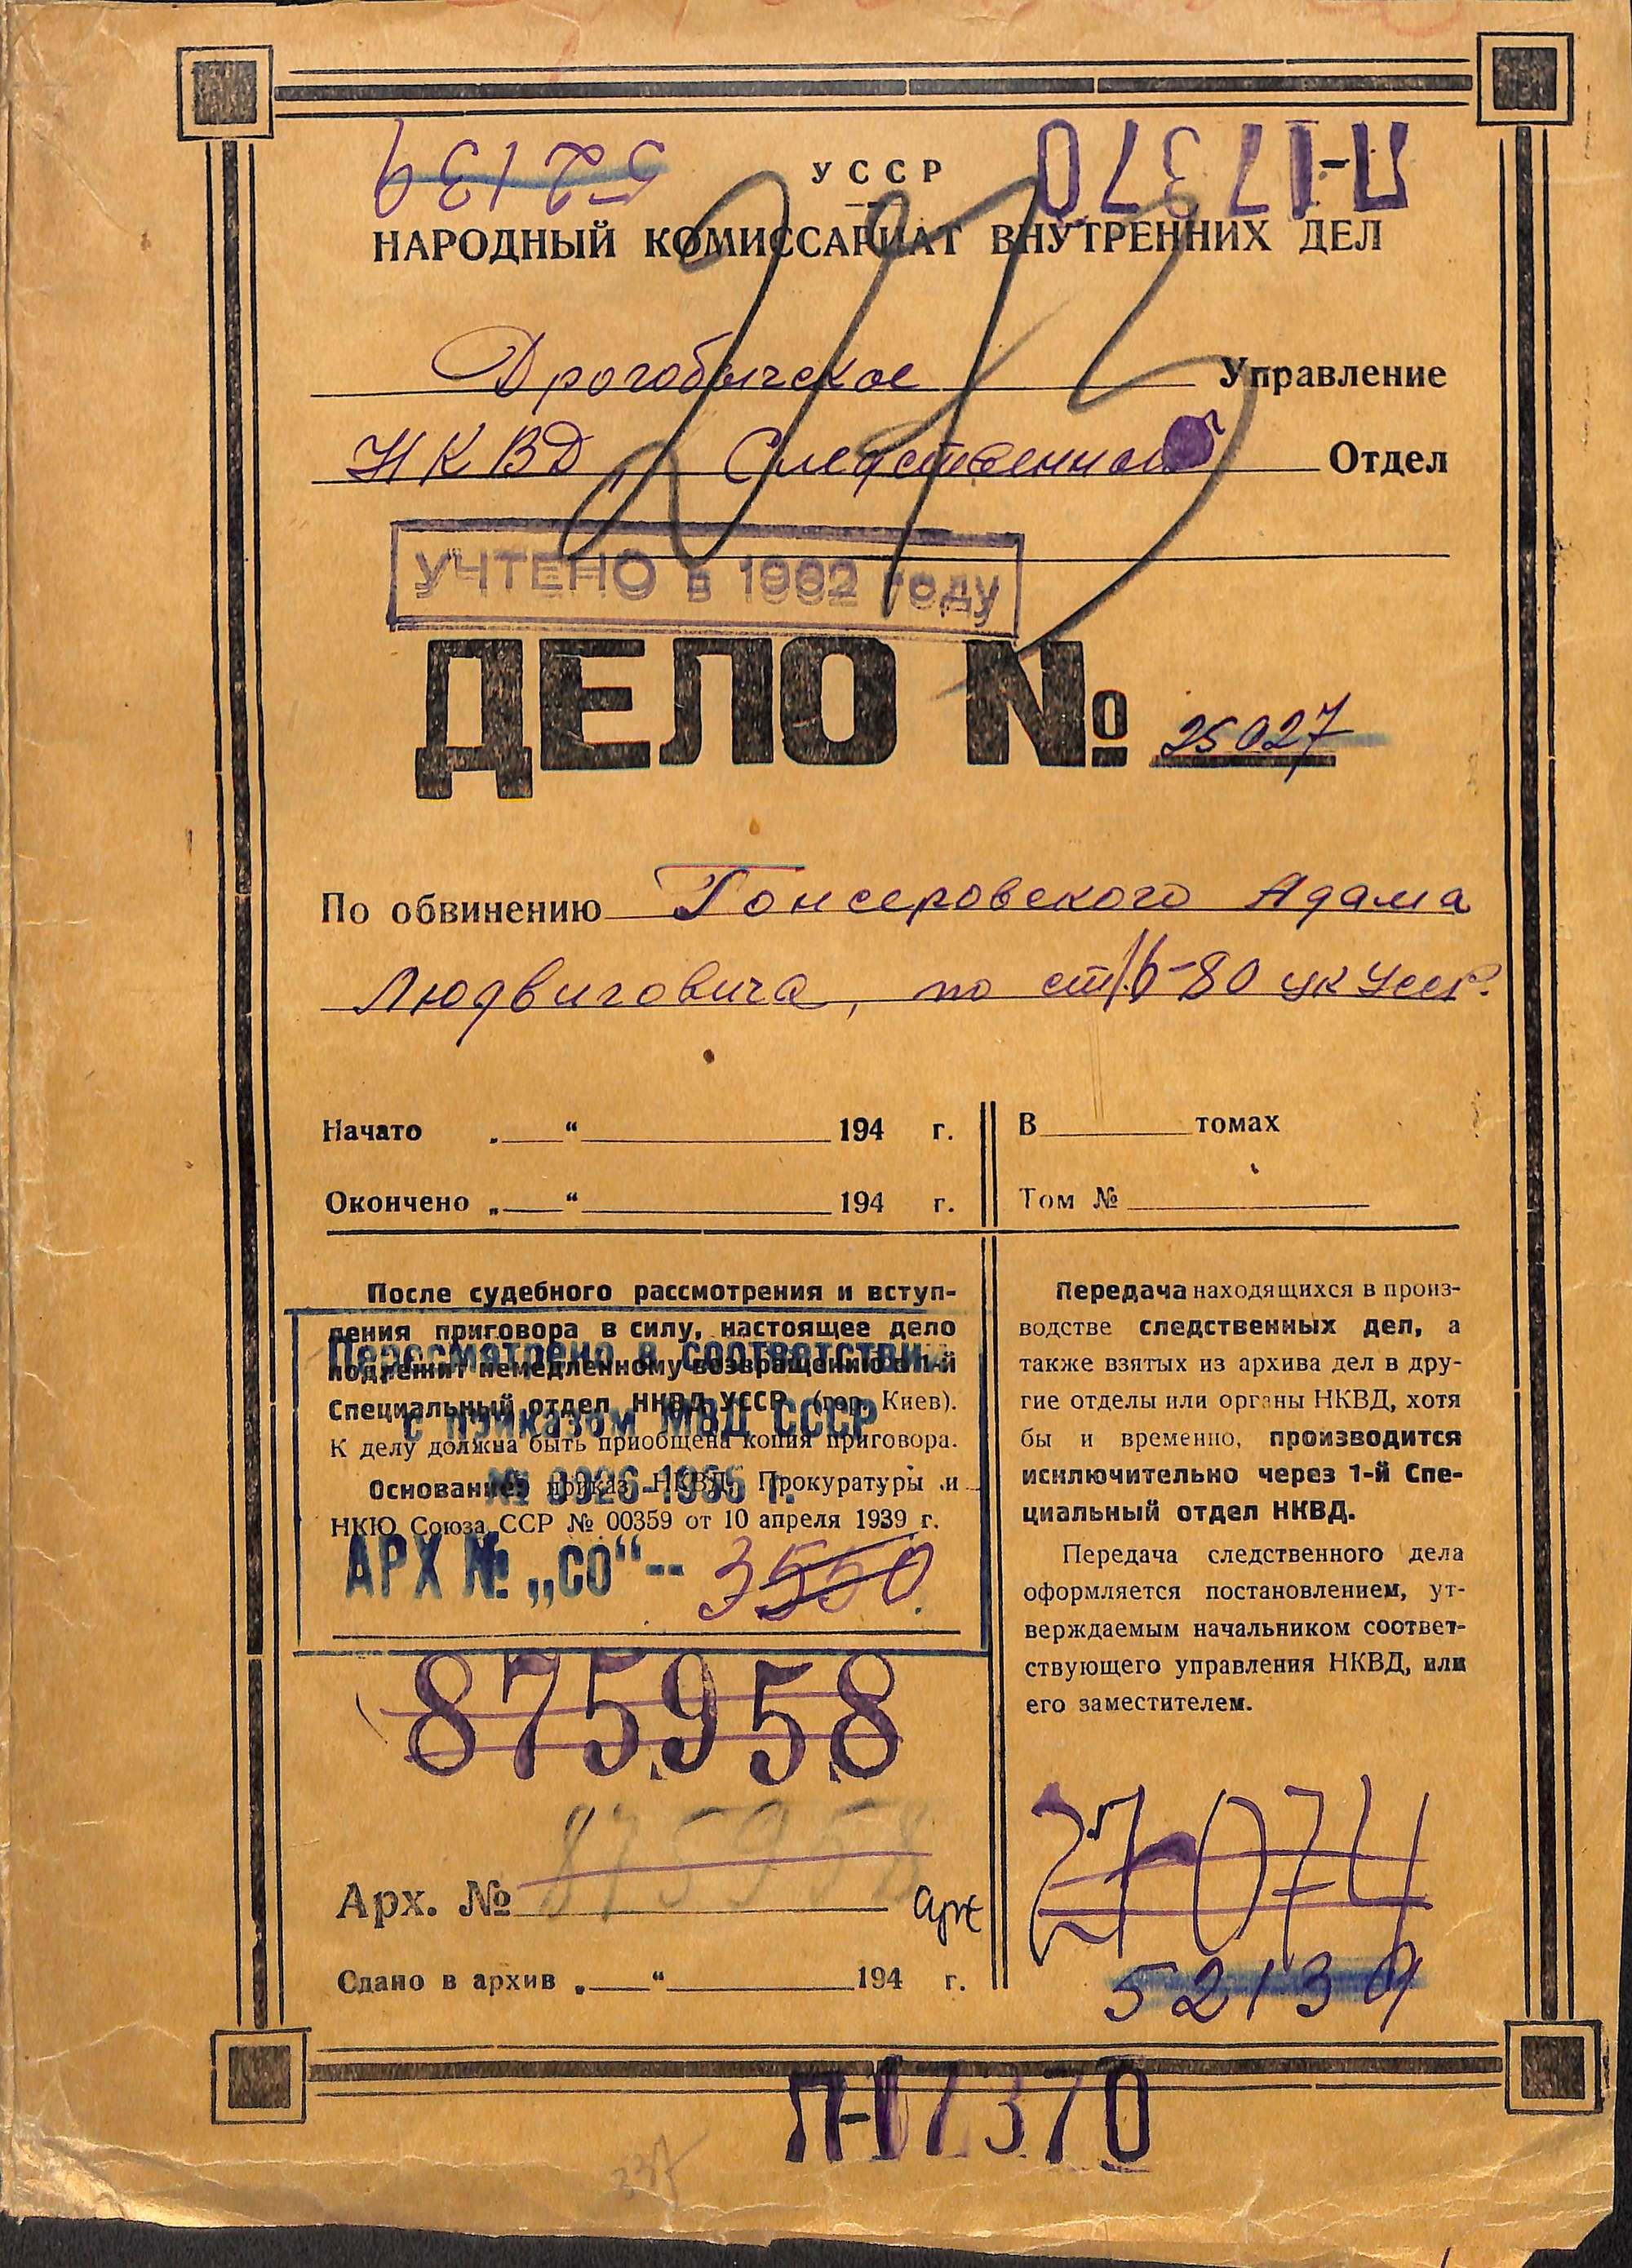 52134
П-17370
УССР
НАРОДНЫЙ КОМИССАРИАТ ВНУТРЕННИХ ДЕЛ
Дрогобычское Управление
НКВД, Следственный Отдел
УЧТЕНО в 1992 году
ДЕЛО № 25027
По обвинению Гонсеровского Адама
Людвиговича, по ст 16-80 УК УССР.
Начато „ “ 194 г.
Окончено „ “ 194 г.
В томах
Том №
После судебного рассмотрения и вступ-
ления приговора в силу, настоящее дело
подлежит немедленному возвращению в 1-й
Специальный отдел НКВД УССР (гор. Киев).
К делу должна быть приобщена копия приговора.
Основание: приказ НКВД, Прокуратуры и
НКЮ Союза ССР № 00359 от 10 апреля 1939 г.
Пересмотрено в соответствии
с приказом МВД СССР
№ 0026-1955 г.
АРХ № „СО“-- 3550
875958
Арх. № 875958
Сдано в архив „ “ 194 г.
Передача находящихся в произ-
водстве следственных дел, а
также взятых из архива дел в дру-
гие отделы или органы НКВД, хотя
бы и временно, производится
исключительно через 1-й Спе-
циальный отдел НКВД.
Передача следственного дела
оформляется постановлением, ут-
верждаемым начальником соответ-
ствующего управления НКВД, или
его заместителем.
52134
П-17370
337